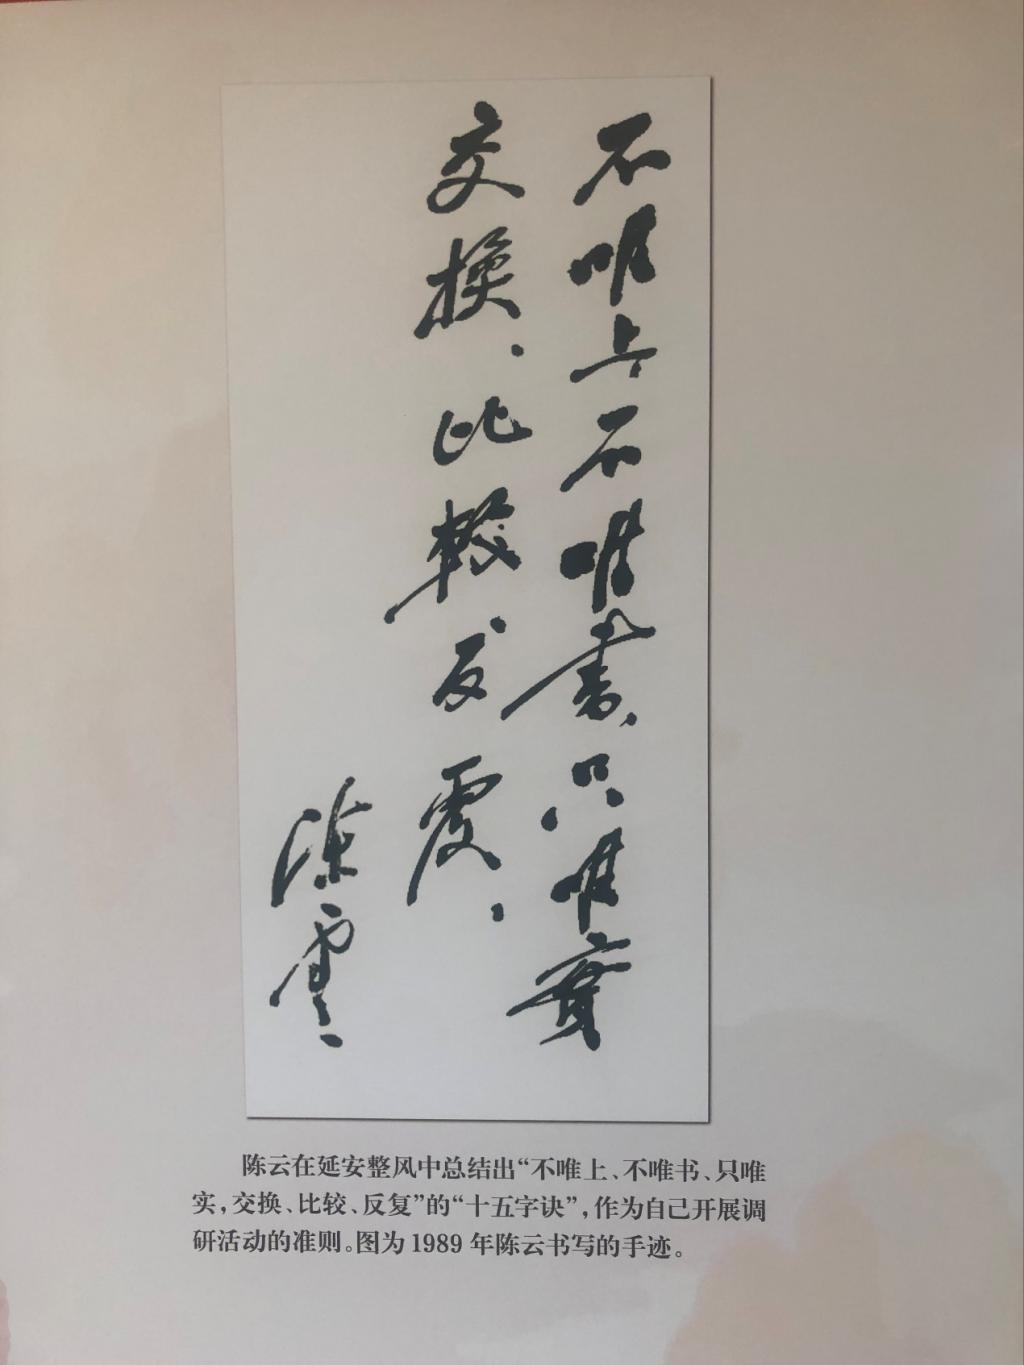 不唯上不唯書、只唯實
交換、比較、反覆。
陳雲
陈云在延安整风中总结出“不唯上、不唯书、只唯
实，交换、比较、反复”的“十五字诀”，作为自己开展调
研活动的准则。图为1989年陈云书写的手迹。